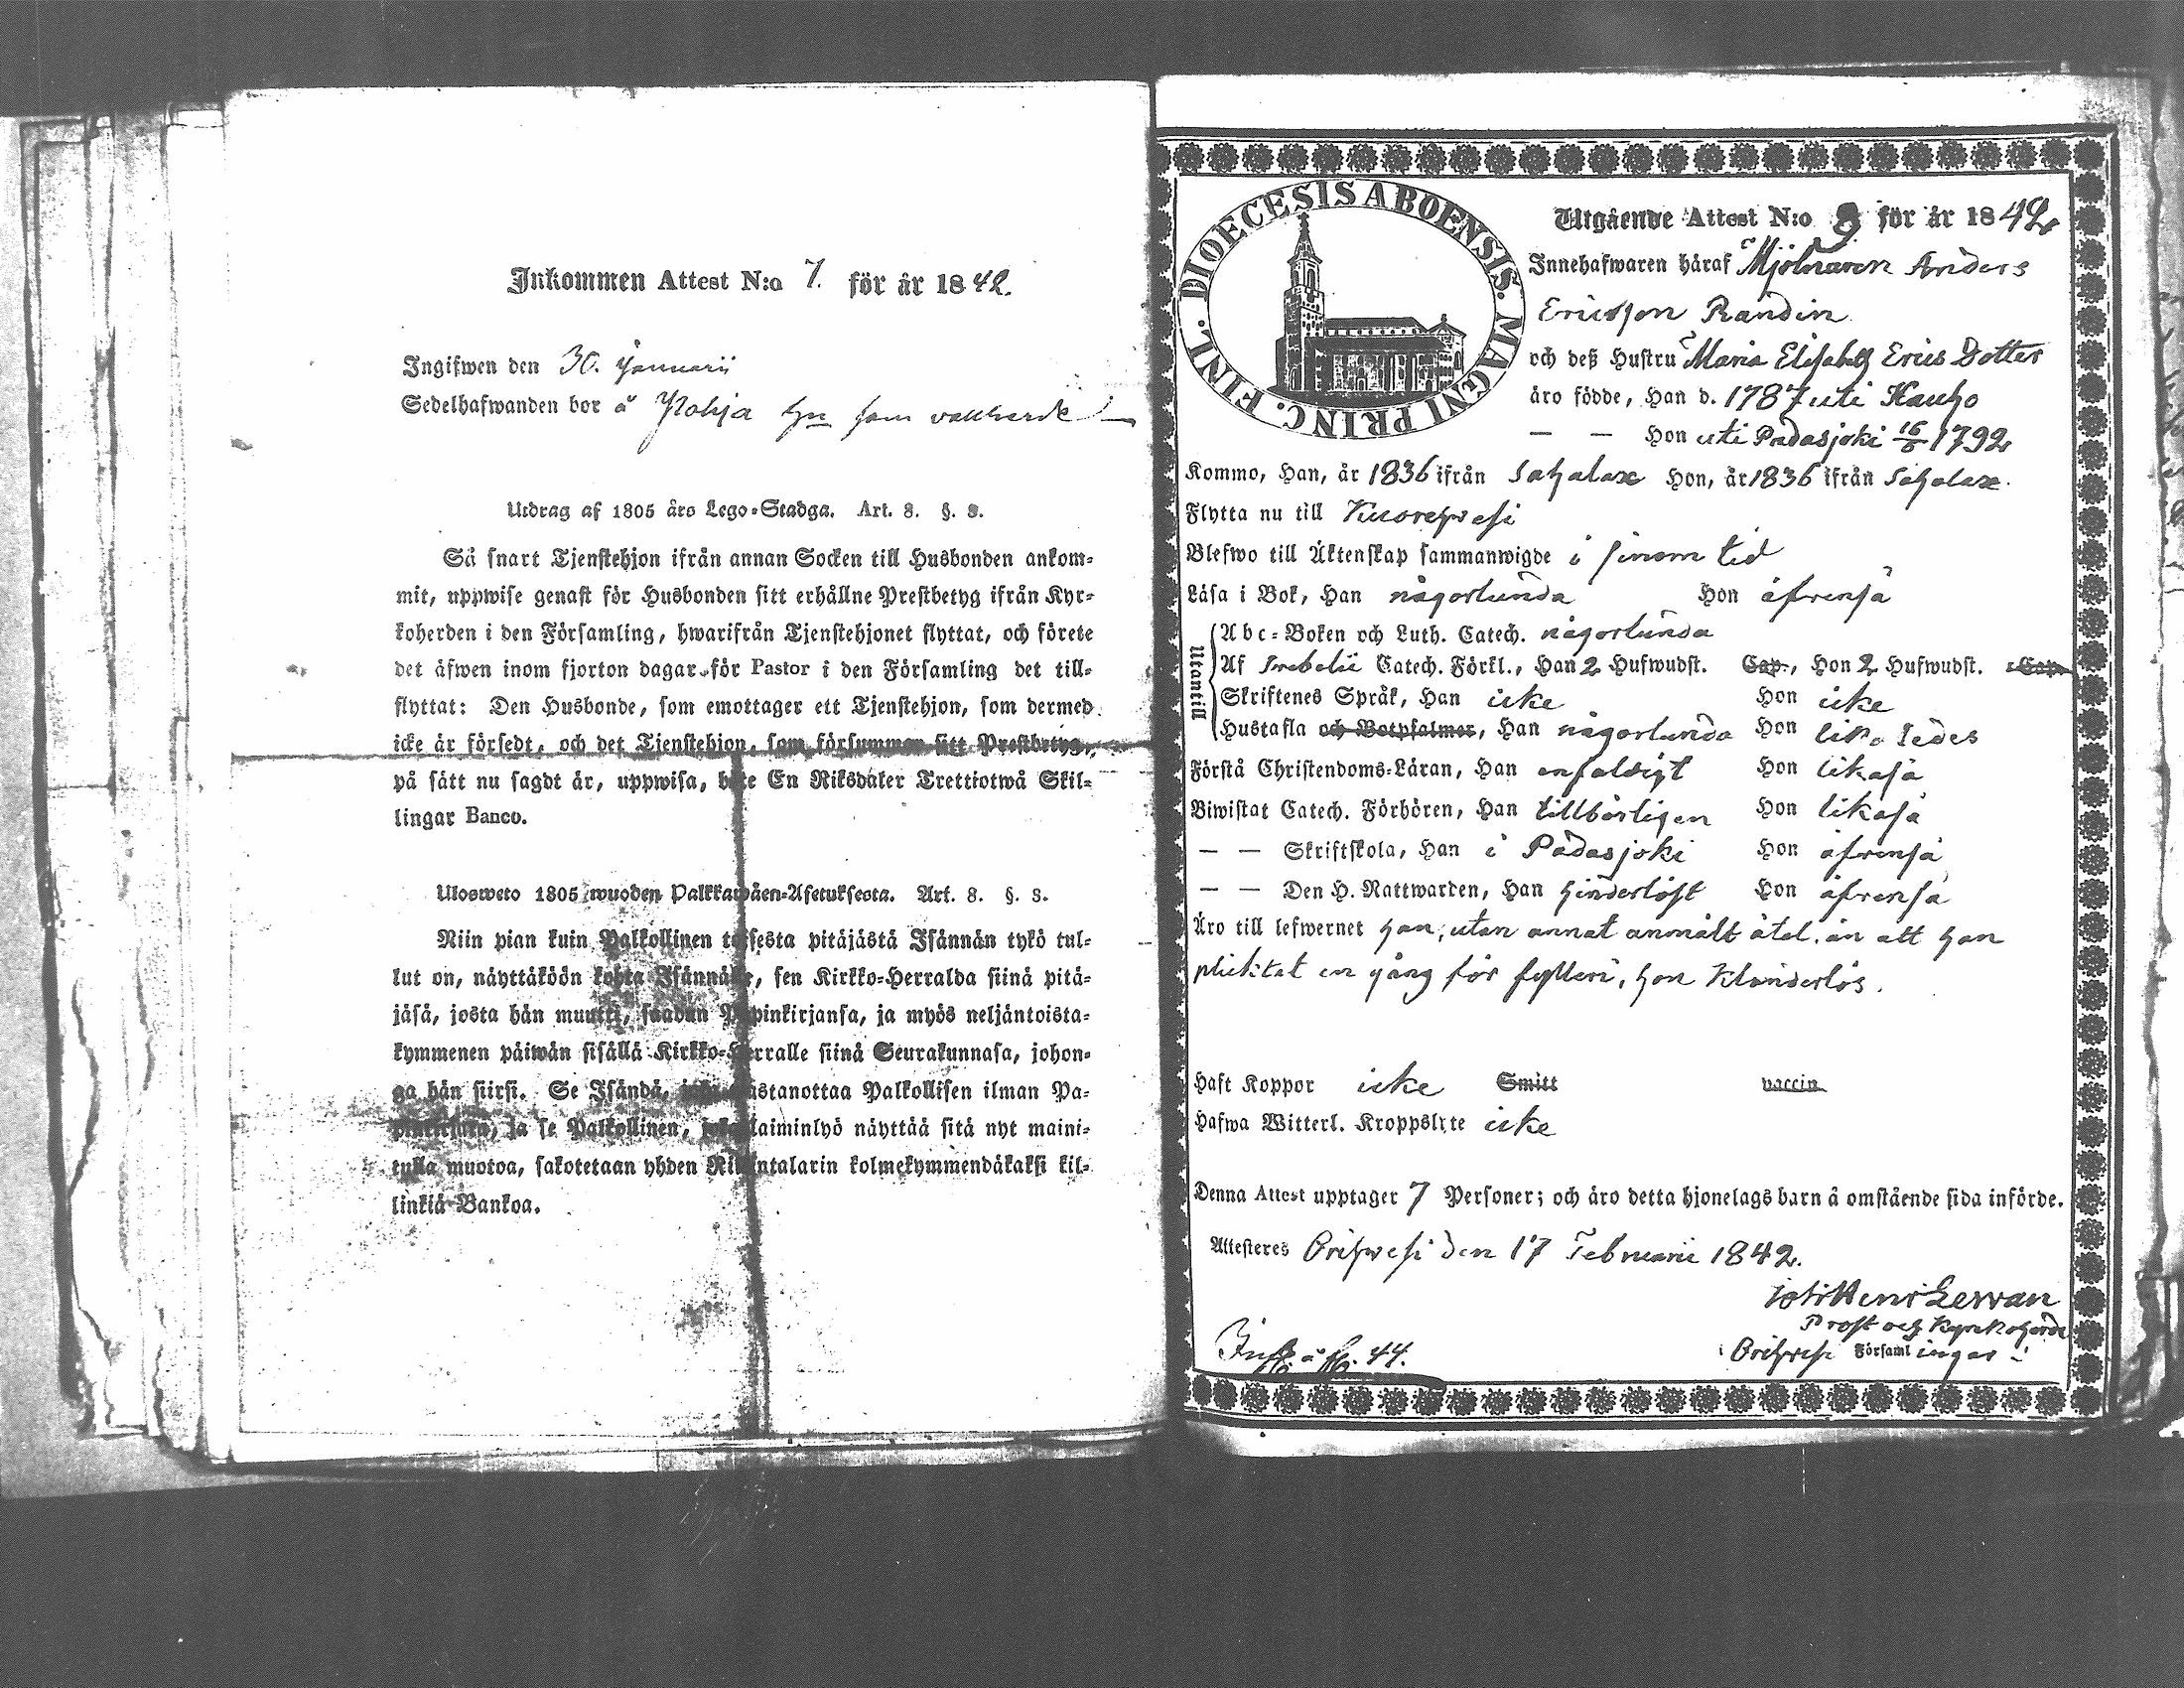 Inkommen Attest N:o 7. för år 1842.
Ingifwen den 30. Januarii
Sedelhafwanden bor å Pohja som
Utdrag af 1805 års Lego-Stadga. Art. 8. §. 8.
Så snart Tjenstehjon ifrån annan Socken till Husbonden ankom-
mit, uppwise genast för Husbonden sitt erhållne Prestbetyg ifrån Kyr-
koherden i den Församling, hwarifrån Tjenstehjonet flyttat, och förete
det äfwen inom fjorton dagar för Pastor i den Församling det till-
flyttat: Den Husbonde, som emottager ett Tjenstehjon, som dermed
icke är försedt, och det Tjenstehjon, som försummar sitt Prestbetyg,
på sätt nu sagdt är, uppwisa, böte En Riksdaler Trettiotwå Skil-
lingar Banco.
Ulosweto 1805 wuoden Palkkawäen-Asetuksesta. Art. 8. §. 8.
Niin pian kuin Palkollinen toisesta pitäjästä Isännän tykö tul-
lut on, näyttäköön kohta Isännälle, sen Kirkko-Herralda siinä pitä-
jäsä, josta hän muutti, saadun Papinkirjansa, ja myös neljäntoista-
kymmenen päiwän sisällä Kirkko-Herralle siinä Seurakunnasa, johon-
ga hän siirsi. Se Isändä, joka wastanottaa Palkollisen ilman Pa-
pinkirjata, ja se Palkollinen, joka laiminlyö näyttää sitä nyt maini-
tulla muotoa, sakotetaan yhden Riksintalarin kolmekymmendäkaksi kil-
linkiä Bankoa.
DIOECESIS ABOENSIS. MAGNI PRINC. FINL.
Utgående Attest N:o 9 för år 1842
Innehafwaren häraf Mjölnaren Anders
Ericsson Randin
och deß Hustru Maria Elisabeth Erics Dotter
äro födde, Han d. 1787 uti Hauho
— — Hon uti Padasjoki 16/6 1792
Kommo, Han, år 1836 ifrån Sahalax Hon, år 1836 ifrån Sahalax.
Flytta nu till Kuorehwesi
Blefwo till Äktenskap sammanwigde i sinom tid
Läsa i Bok, Han någorlunda Hon äfwenså
Utantill
Abc-Boken och Luth. Catech. någorlunda
Af Swebelii Catech. Förkl., Han 2 Hufwudst. Cap., Hon 2 Hufwudst. Cap.
Skriftenes Språk, Han icke Hon icke
Hustafla och Botpsalmer, Han någorlunda Hon likaledes
Förstå Christendoms-Läran, Han enfaldigt Hon likaså
Biwistat Catech. Förhören, Han tillbörligen Hon likaså
— — Skriftskola, Han i Padasjoki Hon äfwenså
— — Den H. Nattwarden, Han hinderlöst Hon äfwenså
Äro till lefwernet han, utan annat anmält åtal, än att han
pliktat en gång för fylleri, hon klanderlös.
Haft Koppor icke Smitt vaccin
Hafwa Witterl. Kroppslyte icke
Denna Attest upptager 7 Personer; och äro detta hjonelags barn å omstående sida införde.
Attesteres Orihwesi den 17 Februarii 1842.
Prost och Kyrkoherde
i Orihwesi Församlingar
44.